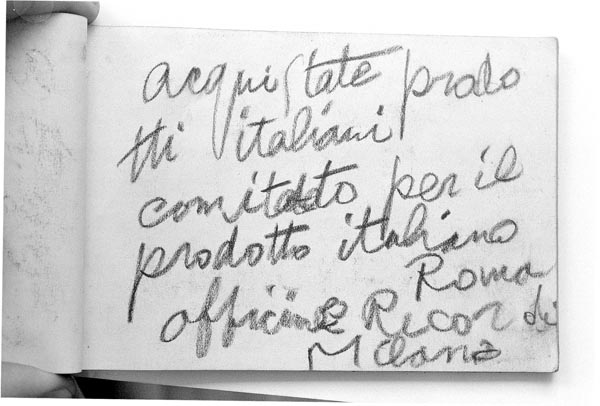 acquistate prodo
tti italiani
comitato per il
prodotto italiano
Roma
officine Ricordi
Milano